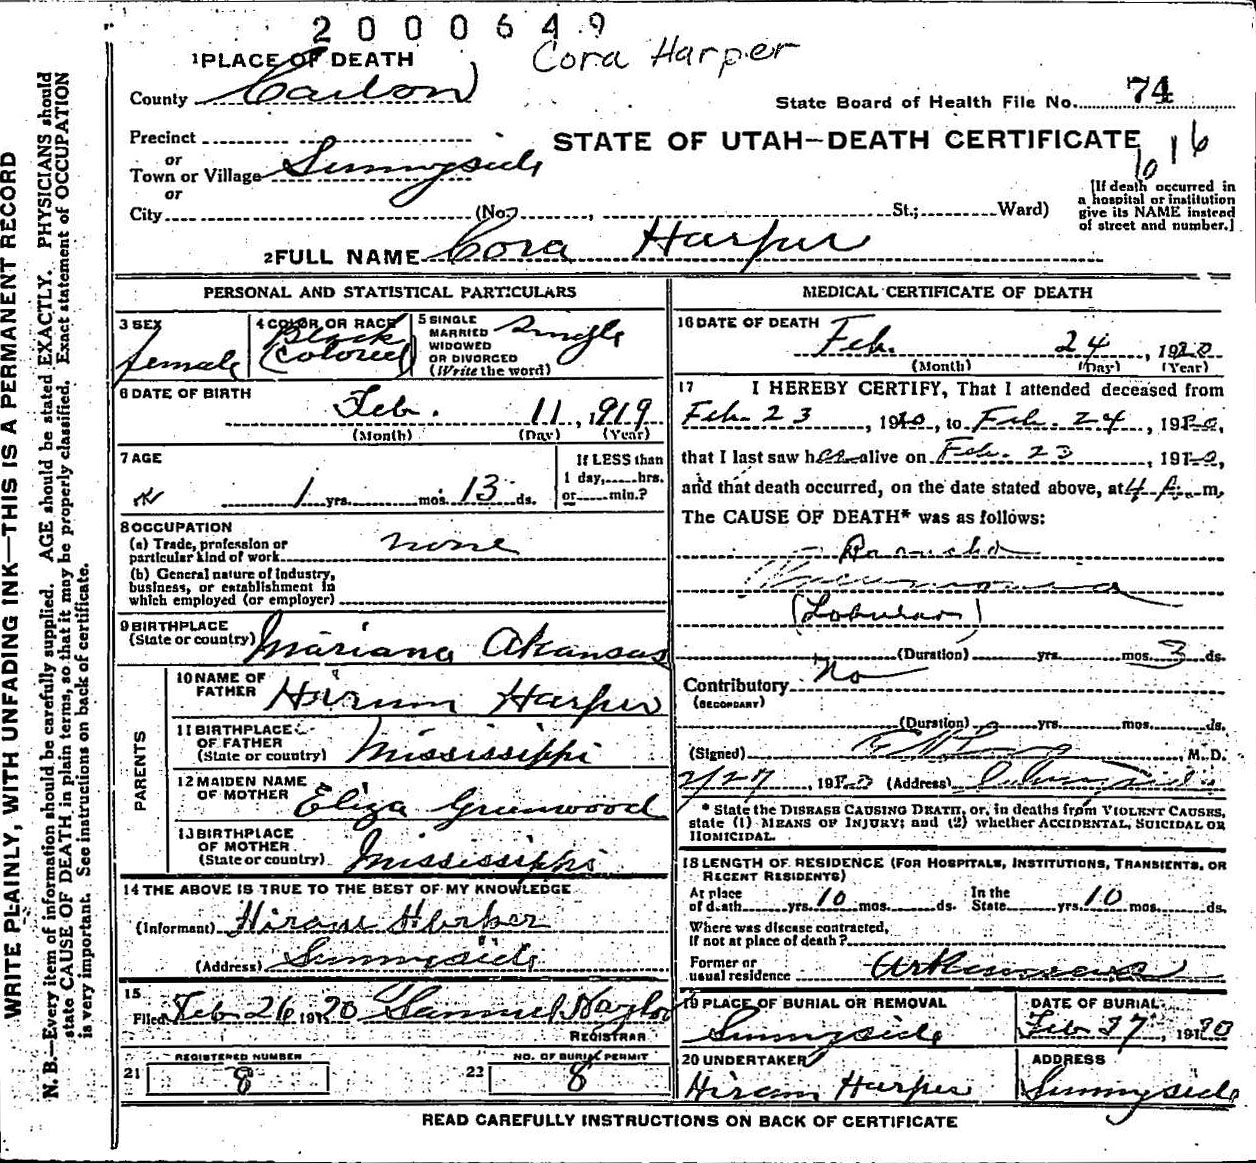 2000649
Cora Harper
1 PLACE OF DEATH
County Carbon
State Board of Health File No. 74
Precinct
STATE OF UTAH—DEATH CERTIFICATE
1016
or
Town or Village Sunnyside
or
City (No. , St.; Ward)
[If death occurred in
a hospital or institution
give its NAME instead
of street and number.]
2 FULL NAME Cora Harper
PERSONAL AND STATISTICAL PARTICULARS
3 SEX
female
4 COLOR OR RACE
Black
(Colored)
5 SINGLE
MARRIED
WIDOWED
OR DIVORCED
(Write the word)
Single
6 DATE OF BIRTH
Feb. 11, 1919
(Month) (Day) (Year)
7 AGE
1 yrs. mos. 13 ds.
If LESS than
1 day, hrs.
or min.?
8 OCCUPATION
(a) Trade, profession or
particular kind of work none
(b) General nature of industry,
business, or establishment in
which employed (or employer)
9 BIRTHPLACE
(State or country) Mariana Arkansas
PARENTS
10 NAME OF
FATHER Hirum Harper
11 BIRTHPLACE
OF FATHER
(State or country) Mississippi
12 MAIDEN NAME
OF MOTHER Eliza Greenwood
13 BIRTHPLACE
OF MOTHER
(State or country) Mississippi
14 THE ABOVE IS TRUE TO THE BEST OF MY KNOWLEDGE
(Informant) Hiram Harper
(Address) Sunnyside
15
Filed Feb 26 1920 Samuel Naylor
REGISTRAR
21 REGISTERED NUMBER
8
22 NO. OF BURIAL PERMIT
8
MEDICAL CERTIFICATE OF DEATH
16 DATE OF DEATH
Feb. 24, 1920
(Month) (Day) (Year)
17 I HEREBY CERTIFY, That I attended deceased from
Feb. 23, 1920, to Feb. 24, 1920,
that I last saw her alive on Feb. 23, 1920,
and that death occurred, on the date stated above, at 4 A. m.
The CAUSE OF DEATH* was as follows:
Broncho
Pneumonia
(Lobular)
(Duration) yrs. mos. 3 ds.
Contributory No
(SECONDARY)
(Duration) yrs. mos. ds.
(Signed) M. D.
2/27, 1920 (Address) Sunnyside
* State the DISEASE CAUSING DEATH, or, in deaths from VIOLENT CAUSES,
state (1) MEANS OF INJURY; and (2) whether ACCIDENTAL, SUICIDAL OR
HOMICIDAL.
18 LENGTH OF RESIDENCE (FOR HOSPITALS, INSTITUTIONS, TRANSIENTS, OR
RECENT RESIDENTS)
At place
of death yrs. 10 mos. ds.
In the
State yrs. 10 mos. ds.
Where was disease contracted,
if not at place of death?
Former or
usual residence Arkansas
19 PLACE OF BURIAL OR REMOVAL
Sunnyside
DATE OF BURIAL
Feb 27, 1920
20 UNDERTAKER
Hiram Harper
ADDRESS
Sunnyside
READ CAREFULLY INSTRUCTIONS ON BACK OF CERTIFICATE
WRITE PLAINLY, WITH UNFADING INK—THIS IS A PERMANENT RECORD
N. B.—Every item of information should be carefully supplied. AGE should be stated EXACTLY. PHYSICIANS should
state CAUSE OF DEATH in plain terms, so that it may be properly classified. Exact statement of OCCUPATION
is very important. See instructions on back of certificate.